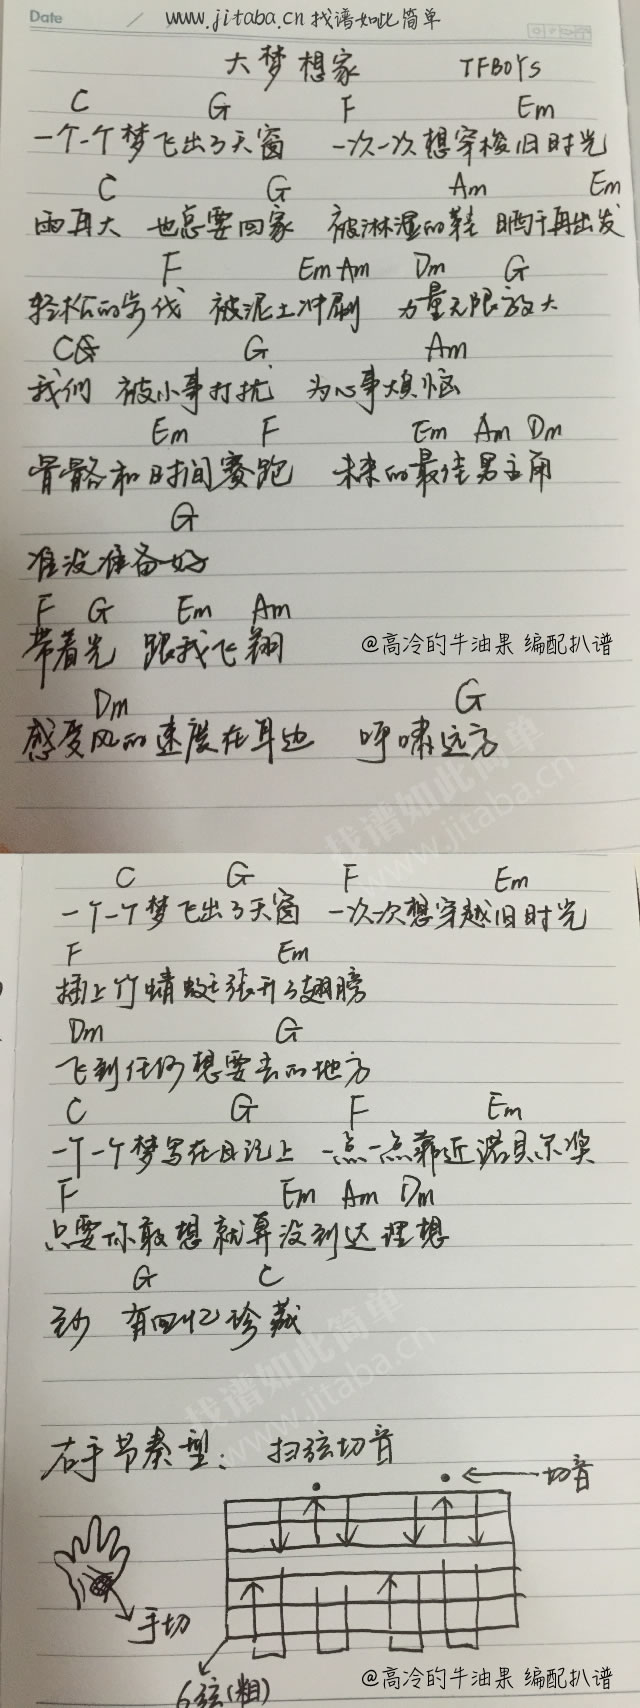 Date / www.jitaba.cn 找谱如此简单
大梦想家 TFBOYS
C G F Em
一个一个梦飞出了天窗 一次一次想穿梭旧时光
C G Am Em
雨再大 也总要回家 被淋湿的鞋 晒干再出发
F Em Am Dm G
轻松的步伐 被泥土冲刷 力量无限放大
C G G Am
我们 被小事打扰 为心事烦恼
Em F Em Am Dm
骨骼和时间赛跑 未来的最佳男主角
G
准没准备好
F G Em Am
带着光 跟我飞翔 @高冷的牛油果 编配扒谱
Dm G
感受风的速度在耳边 呼啸远方
找谱如此简单
www.jitaba.cn
C G F Em
一个一个梦飞出了天窗 一次次想穿越旧时光
F Em
插上竹蜻蜓张开了翅膀
Dm G
飞到任何想要去的地方
C G F Em
一个一个梦写在日记上 一点一点靠近诺贝尔奖
F Em Am Dm
只要你敢想就算没到达理想
G C
至少 有回忆珍藏
找谱如此简单
www.jitaba.cn
右手节奏型: 扫弦切音
切音
手切
6弦(粗) @高冷的牛油果 编配扒谱